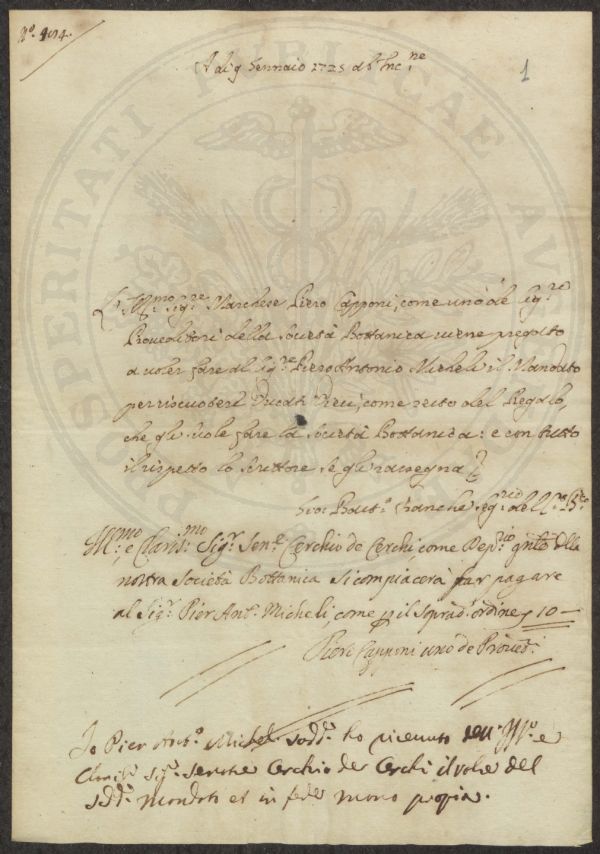 N.º 404.
1
A di 9 Gennaio 1725 ab Inc.ne
L'Ill.mo Sig.re Marchese Piero Capponi, come uno de Sig.ri
Proveditori della Società Bottanica viene pregato
a voler fare al Sig.re Pier Antonio Micheli il Mandato
per riscuotere Ducati Dieci, come resto del Regalo,
che gli suole fare la Società Bottanica: e con tutto
il rispetto lo scrittore se gli rassegna
Gio: Batt.a Seg.rio
Ill.mo e Claris.mo Sig.r Sen.e Cerchio de Cerchi come Dep.rio della
nostra Società Bottanica si compiacerà far pagare
al Sig.r Pier Ant.o Micheli come p il Soprad.o ordine 10 —
Piero Capponi uno de Proved.ri
Io Pier Ant.o Micheli sodd.o ho ricevuto Ill.mo e
Claris.o Sig.r Senatore Cerchio de Cerchi il vole del
sdd.o Mandato et in fede mano propia.
PROSPERITATI PUBLICAE AU